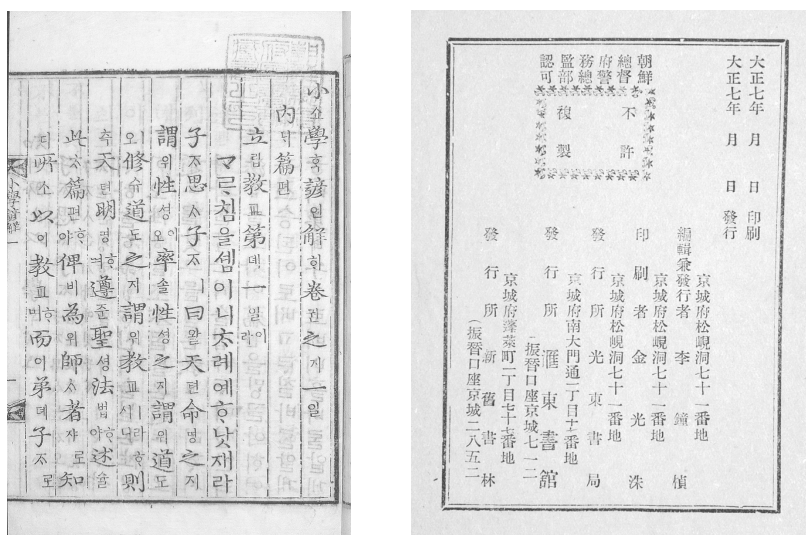 小쇼學혹諺언解회卷권之지一일
內니篇편
立립敎교第뎨一일이라
ᄀᆞᄅᆞ침을셈이니ᄎᆞ례예ᄒᆞ낫재라
子ᄌᆞ思ᄉᆞ子ᄌᆞㅣ曰왈天텬命명之지
謂위性셩이오率솔性셩之지謂위道도
ㅣ오修슈道도之지謂위敎교ㅣ라ᄒᆞ시니則
측天텬明명ᄒᆞ며遵준聖셩法법ᄒᆞ야述슐
此ᄎᆞ篇편ᄒᆞ야俾비爲위師ᄉᆞ者쟈로知
디所소以이敎교ᄒᆞ며而이弟뎨子ᄌᆞ로
小學諺解 一
大正七年 月 日 印刷
大正七年 月 日 發行
朝鮮
總督
府警
務總
監部
認可
不許
複製
京城府松峴洞七十一番地
編輯兼發行者 李鐘楨
京城府松峴洞七十一番地
印刷者 金光洙
京城府松峴洞七十一番地
發行所 光東書局
京城府南大門通一丁目十七番地
發行所 滙東書館
(振替口座京城七一二
京城府蓬萊町一丁目七十七番地
發行所 新舊書林
(振替口座京城二八五二